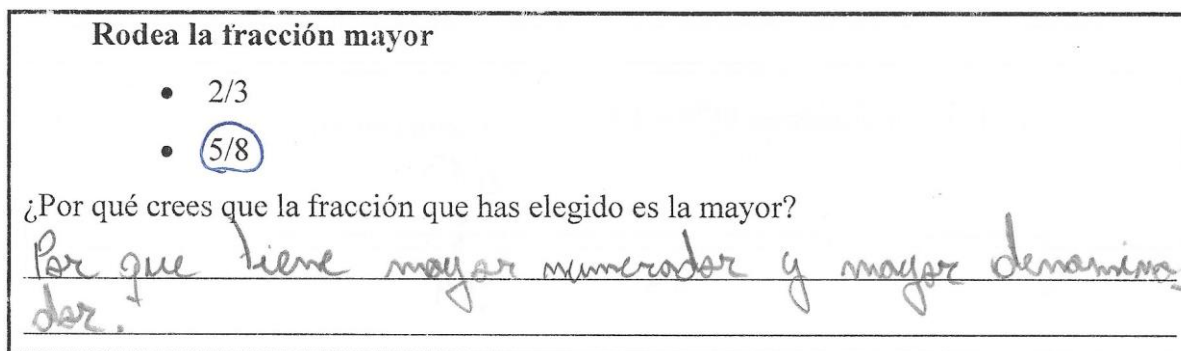 Rodea la fracción mayor
• 2/3
• 5/8
¿Por qué crees que la fracción que has elegido es la mayor?
Por que tiene mayor numerador y mayor denomina-
dor.